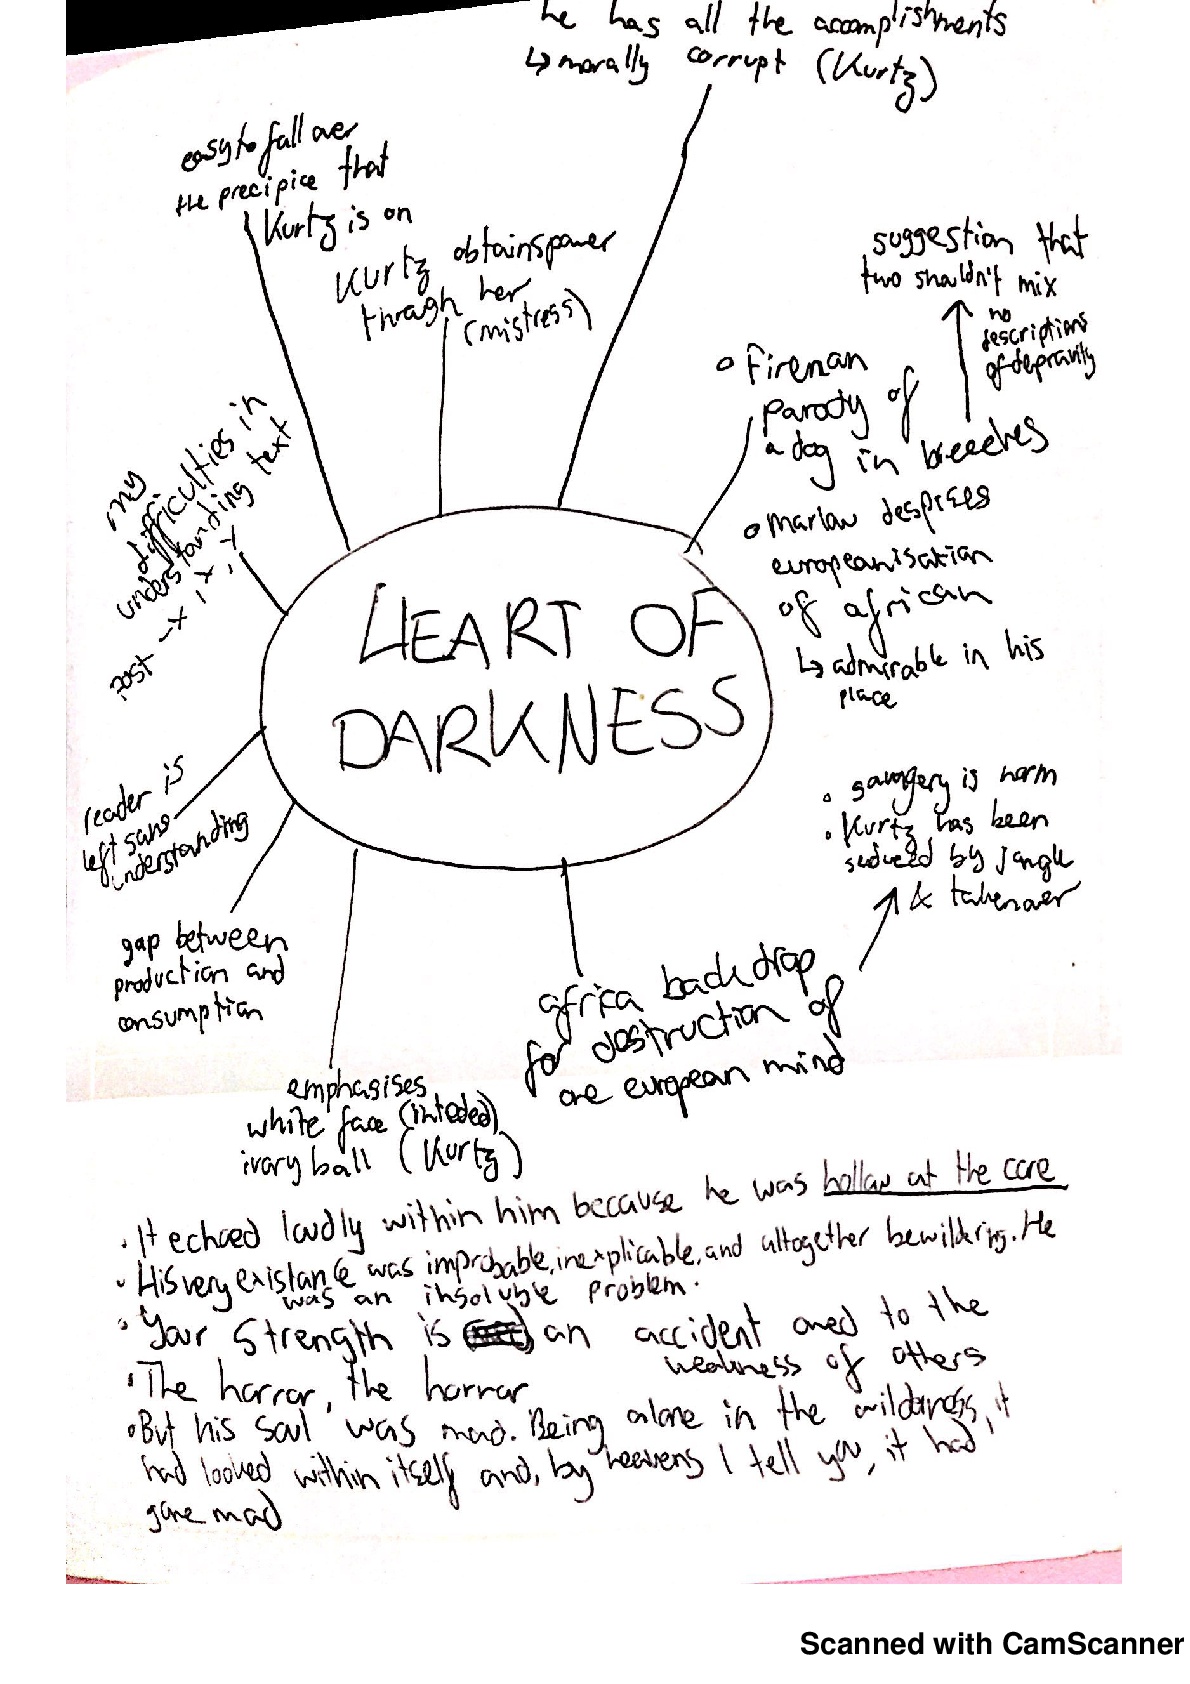 he has all the accomplishments
↳ morally corrupt (Kurtz)
easy to fall over
the precipice that
Kurtz is on
Kurtz obtains power
through her
(mistress)
suggestion that
two shouldn't mix
no
descriptions
of depravity
Fireman
parody of
a dog in breeches
Marlow despises
europeanisation
of african
↳ admirable in his
place
my
difficulties in
understanding text
post -x, x, y
HEART OF
DARKNESS
reader is
left sans
understanding
gap between
production and
consumption
emphasises
white face (inteded)
ivory ball (Kurtz)
africa backdrop
for destruction of
one european mind
• savagery is norm
• Kurtz has been
seduced by jungle
& taken over
• It echoed loudly within him because he was hollow at the core
• His very existance was improbable, inexplicable, and altogether bewildering. He
was an insoluble problem.
• Your strength is an accident owed to the
weakness of others
• The horror, the horror
• But his soul was mad. Being alone in the wilderness, it
had looked within itself and, by heavens I tell you, it had
gone mad
Scanned with CamScanner